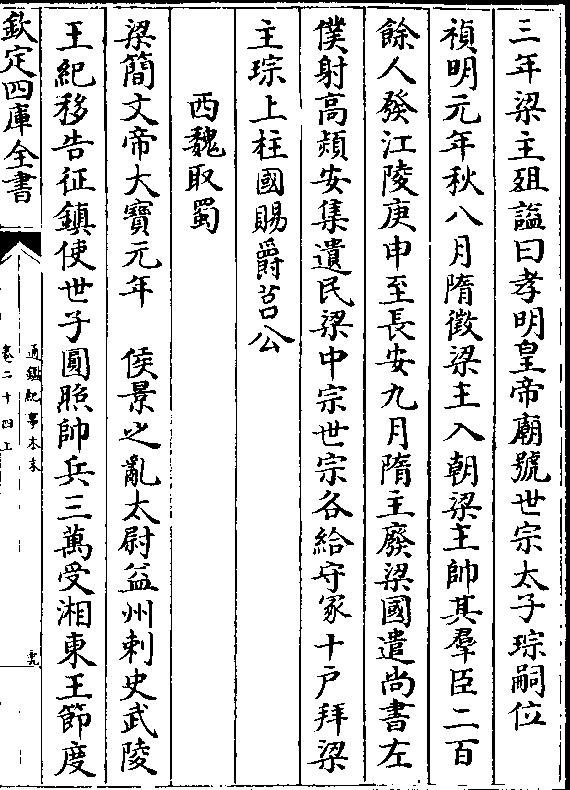 三年梁主殂諡曰孝明皇帝廟號世宗太子琮嗣位
禎明元年秋八月隋徵梁主入朝梁主帥其羣臣二百
餘人發江陵庚申至長安九月隋主廢梁國遣尚書左
僕射高熲安集遺民梁中宗世宗各給守冢十户拜梁
主琮上柱國賜爵莒公
西魏取蜀
梁簡文帝大寶元年 侯景之亂太尉益州刺史武陵
王紀移告征鎮使世子圓照帥兵三萬受湘東王節度
欽定四庫全書
通鑑紀事本末
卷二十四上